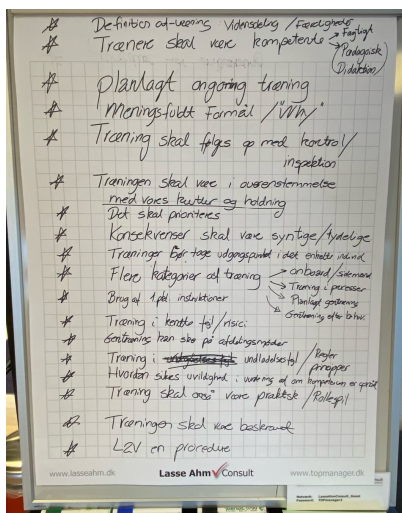 Definition af træning Vidensdeling / Færdigheder
Trænere skal være kompetente → Fagligt
Pædagogisk
Didaktisk
Planlagt ongoing træning
Meningsfuldt Formål / "Why"
Træning skal følges op med kontrol/
inspektion
Træningen skal være i overensstemmelse
med vores kultur og holdning
Det skal prioriteres
Konsekvenser skal være synlige/tydelige
Træninger bør tage udgangspunkt i det enkelte individ
Flere kategorier af træning → onboard/sidemand
→ Træning i processer
→ Planlagt gentræning
→ Gentræning efter behov.
Brug af 1.pkl. instruktioner
Træning i kendte fejl/risici
Gentræning kan ske på afdelingsmøder
Træning i undladelsesfejl / Regler
principper
Hvordan sikres uvildighed i vurdering af om kompetencen er opnået
Træning skal også være praktisk / Rollespil
Træningen skal være beskrevet
L2V en procedure
www.lasseahm.dk Lasse Ahm Consult www.topmanager.dk
Netværk: LasseAhmConsult_Guest
Password: TOPmanager1